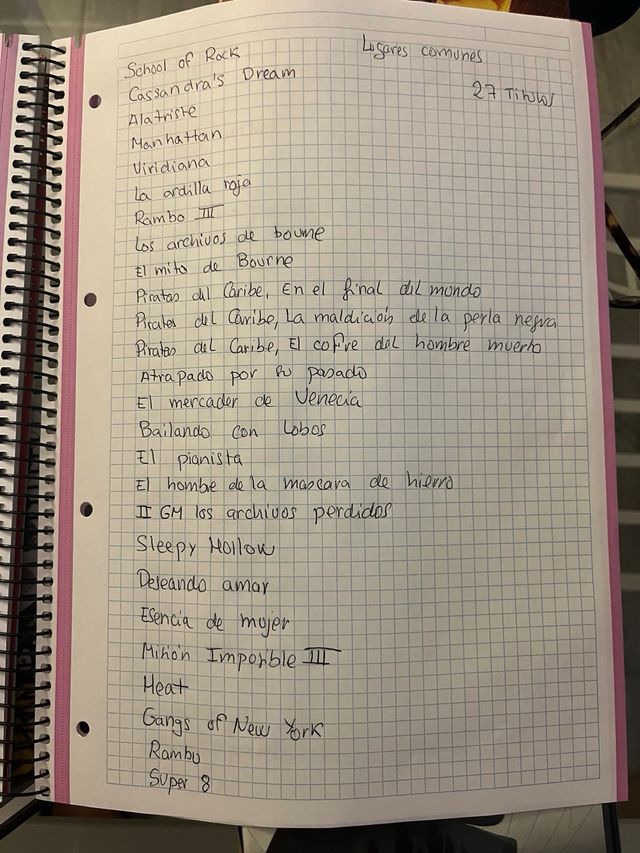 School of Rock
Lugares comunes
Cassandra's Dream
27 Titulos
Alatriste
Manhattan
Viridiana
La ardilla roja
Rambo III
Los archivos de bourne
El mito de Bourne
Piratas del Caribe, En el final del mundo
Piratas del Caribe, La maldición de la perla negra
Piratas del Caribe, El cofre del hombre muerto
Atrapado por su pasado
El mercader de Venecia
Bailando con Lobos
El pianista
El hombre de la mascara de hierro
II GM los archivos perdidos
Sleepy Hollow
Deseando amar
Esencia de mujer
Misión Imposible III
Heat
Gangs of New York
Rambo
Super 8